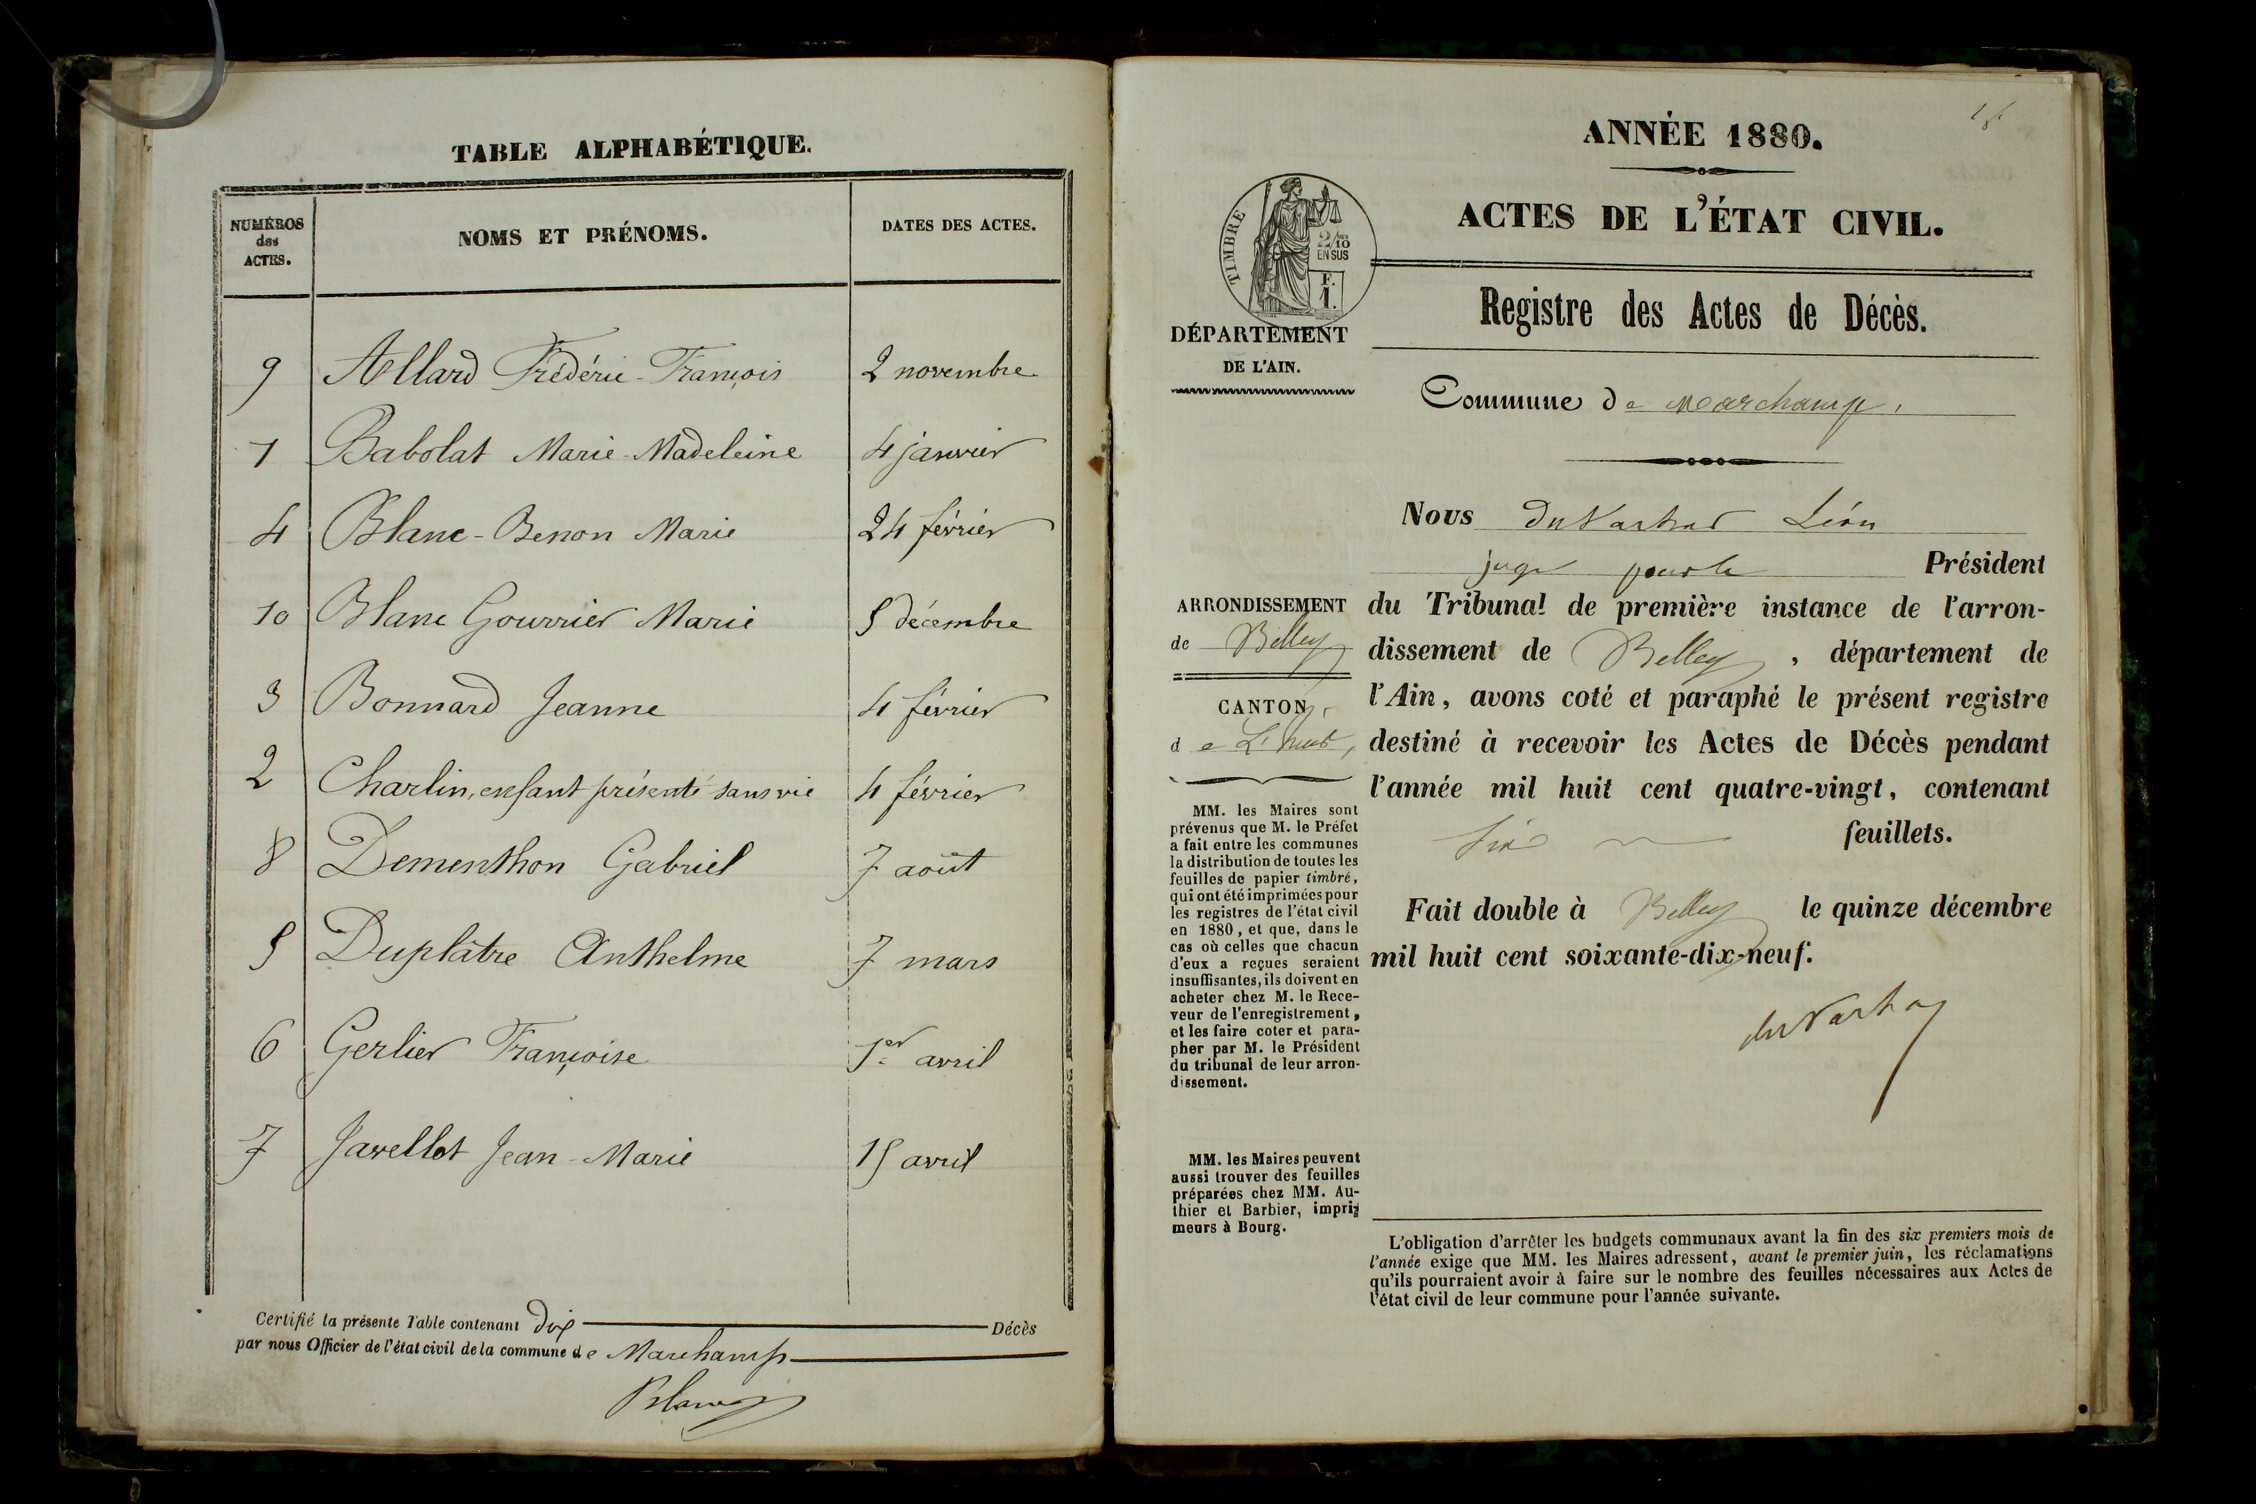 TABLE ALPHABÉTIQUE.
NUMÉROS
des
ACTES.
NOMS ET PRÉNOMS.
DATES DES ACTES.
9 Allard Frédéric-François 2 novembre
1 Babolat Marie-Madeleine 4 janvier
4 Blanc-Benon Marie 24 février
10 Blanc Gourrier Marie 5 décembre
3 Bonnard Jeanne 4 février
2 Charlin, enfant présenté sans vie 4 février
8 Dementhon Gabriel 7 août
5 Duplâtre Anthelme 7 mars
6 Gerlier Françoise 1er avril
7 Javellot Jean-Marie 15 avril
Certifié la présente Table contenant dix Décès
par nous Officier de l'état civil de la commune de Marchamp
Blanc
ANNÉE 1880.
ACTES DE L'ÉTAT CIVIL.
TIMBRE
2/10
EN SUS
F.
1.
Registre des Actes de Décès.
DÉPARTEMENT
DE L'AIN.
Commune de Marchamp.
Nous Léon
juge pour le Président
du Tribunal de première instance de l'arron-
dissement de Belley, département de
l'Ain, avons coté et paraphé le présent registre
destiné à recevoir les Actes de Décès pendant
l'année mil huit cent quatre-vingt, contenant
six feuillets.
Fait double à Belley le quinze décembre
mil huit cent soixante-dix-neuf.
ARRONDISSEMENT
de Belley
CANTON
de
MM. les Maires sont
prévenus que M. le Préfet
a fait entre les communes
la distribution de toutes les
feuilles de papier timbré,
qui ont été imprimées pour
les registres de l'état civil
en 1880, et que, dans le
cas où celles que chacun
d'eux a reçues seraient
insuffisantes, ils doivent en
acheter chez M. le Rece-
veur de l'enregistrement,
et les faire coter et para-
pher par M. le Président
du tribunal de leur arron-
dissement.
MM. les Maires peuvent
aussi trouver des feuilles
préparées chez MM. Au-
thier et Barbier, impri-
meurs à Bourg.
L'obligation d'arrêter les budgets communaux avant la fin des six premiers mois de
l'année exige que MM. les Maires adressent, avant le premier juin, les réclamations
qu'ils pourraient avoir à faire sur le nombre des feuilles nécessaires aux Actes de
l'état civil de leur commune pour l'année suivante.